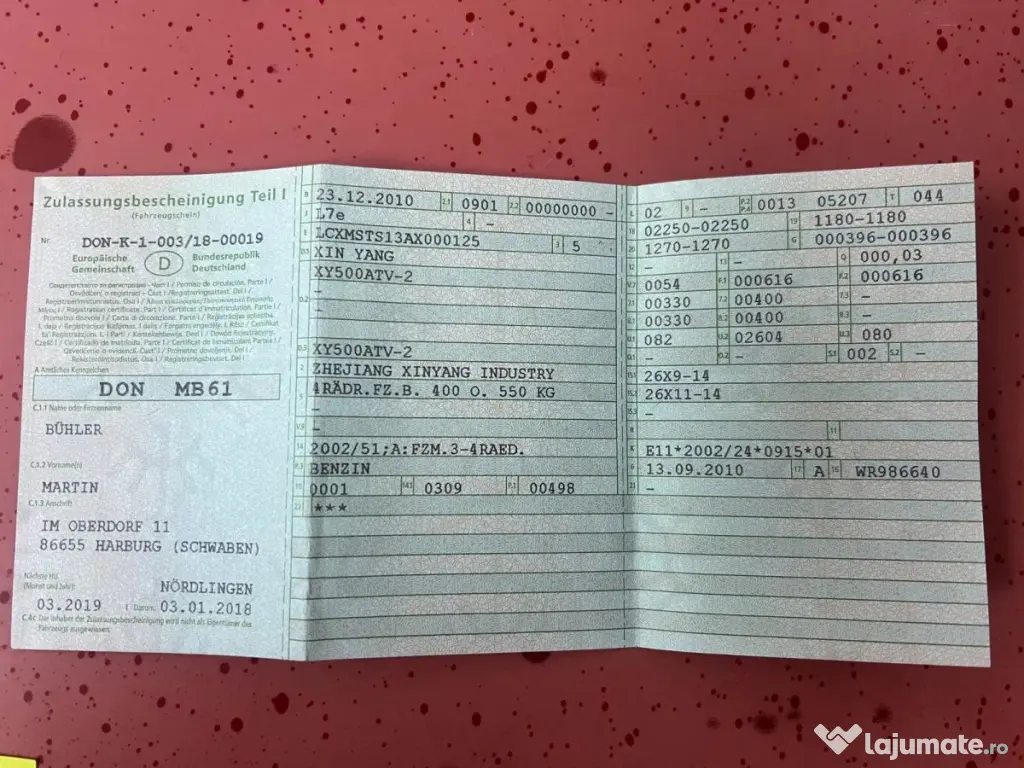 Zulassungsbescheinigung Teil I
(Fahrzeugschein)
Nr. DON-K-1-003/18-00019
Europäische Gemeinschaft D Bundesrepublik Deutschland
A Amtliches Kennzeichen
DON MB61
C.1.1 Name oder Firmenname
BÜHLER
C.1.2 Vorname(n)
MARTIN
C.1.3 Anschrift
IM OBERDORF 11
86655 HARBURG (SCHWABEN)
Nächste HU
(Monat und Jahr)
NÖRDLINGEN
03.2019 I Datum: 03.01.2018
C.4c Der Inhaber der Zulassungsbescheinigung wird nicht als Eigentümer des
Fahrzeugs ausgewiesen.
B 23.12.2010 2.1 0901 2.2 00000000 -
J L7e 4 -
E LCXMSTS13AX000125 3 5
D.1 XIN YANG
XY500ATV-2
-
D.2 -
-
D.3 XY500ATV-2
2 ZHEJIANG XINYANG INDUSTRY
5 4RÄDR.FZ.B. 400 O. 550 KG
-
V.9 -
14 2002/51;A:FZM.3-4RAED.
P.3 BENZIN
10 0001 14.1 0309 P.1 00498
22 ***
L 02 9 - P.2 P.4 0013 05207 T 044
18 02250-02250 19 1180-1180
20 1270-1270 G 000396-000396
12 - 13 - Q 000,03
V.7 0054 F.1 000616 F.2 000616
7.1 00330 7.2 00400 7.3 -
8.1 00330 8.2 00400 8.3 -
U.1 082 U.2 02604 U.3 080
O.1 - O.2 - S.1 002 S.2 -
15.1 26X9-14
15.2 26X11-14
15.3 -
R 11
K E11*2002/24*0915*01
6 13.09.2010 17 A 16 WR986640
21 -
lajumate.ro